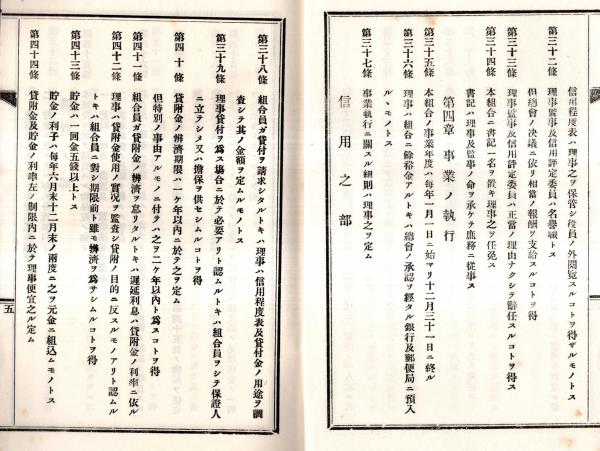 信用程度表ハ理事之ヲ保管シ役員ノ外閲覧スルコトヲ得ザルモノトス
第三十二條 理事監事及信用評定委員ハ名譽職トス
但總會ノ決議ニ依リ相當ノ報酬ヲ支給スルコトヲ得
第三十三條 理事監事及信用評定委員ハ正當ノ理由ナクシテ辭任スルコトヲ得ス
第三十四條 本組合ニ書記一名ヲ置キ理事之ヲ任免ス
書記ハ理事及監事ノ命ヲ承ケテ庶務ニ從事ス
第四章 事業ノ執行
第三十五條 本組合ノ事業年度ハ毎年一月一日ニ始マリ十二月三十一日ニ終ル
第三十六條 理事ハ組合ニ餘裕金アルトキハ總會ノ承認ヲ經タル銀行及郵便局ニ預入
ルヽモノトス
第三十七條 事業執行ニ關スル細則ハ理事之ヲ定ム
信用之部
第三十八條 組合員ガ貸付ヲ請求シタルトキハ理事ハ信用程度表及貸付金ノ用途ヲ調
査シテ其ノ金額ヲ定ムルモノトス
第三十九條 理事貸付ヲ爲ス塲合ニ於テ必要アリト認ムルトキハ組合員ヲシテ保證人
ニ立テシメ又ハ擔保ヲ供セシムルコトヲ得
第四十條 貸附金ノ辨濟期限ハ一ケ年以内ニ於テ之ヲ定ム
但特別ノ事由アルモノニ付テハ之ヲ二ケ年以内ト爲スコトヲ得
第四十一條 組合員ガ貸附金ノ辨濟ヲ怠リタルトキハ遲延利息ハ貸附金ノ利率ニ依ル
第四十二條 理事ハ貸附金使用ノ實況ヲ監査シ貸附ノ目的ニ反スルモノアリト認ムル
トキハ組合員ニ對シ期限前ト雖モ辨濟ヲ爲サシムルコトヲ得
第四十三條 貯金ハ一回金五錢以上トス
貯金ノ利子ハ毎年六月末十二月末ノ兩度ニ之ヲ元金ニ組込ムモノトス
第四十四條 貸附金及貯金ノ利率左ノ制限内ニ於テ理事便宜之ル定ム
五